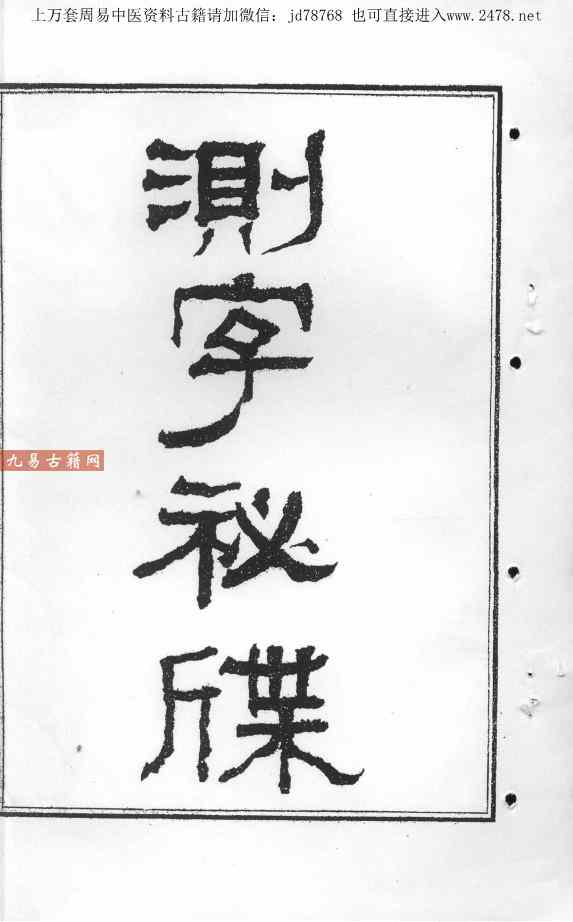 上万套周易中医资料古籍请加微信：jd78768 也可直接进入www.2478.net
測字祕牒
九易古籍网